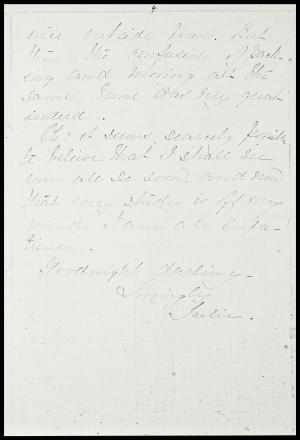 nice outside room. But
then the confusion of pack-
ing and moving at the
same time was very great
indeed.
Oh! it seems scarcely possible
to believe that I shall see
you all so soon, and now
that my study is off my
mind I am all impa-
tience.
Goodnight darling.
Lovingly